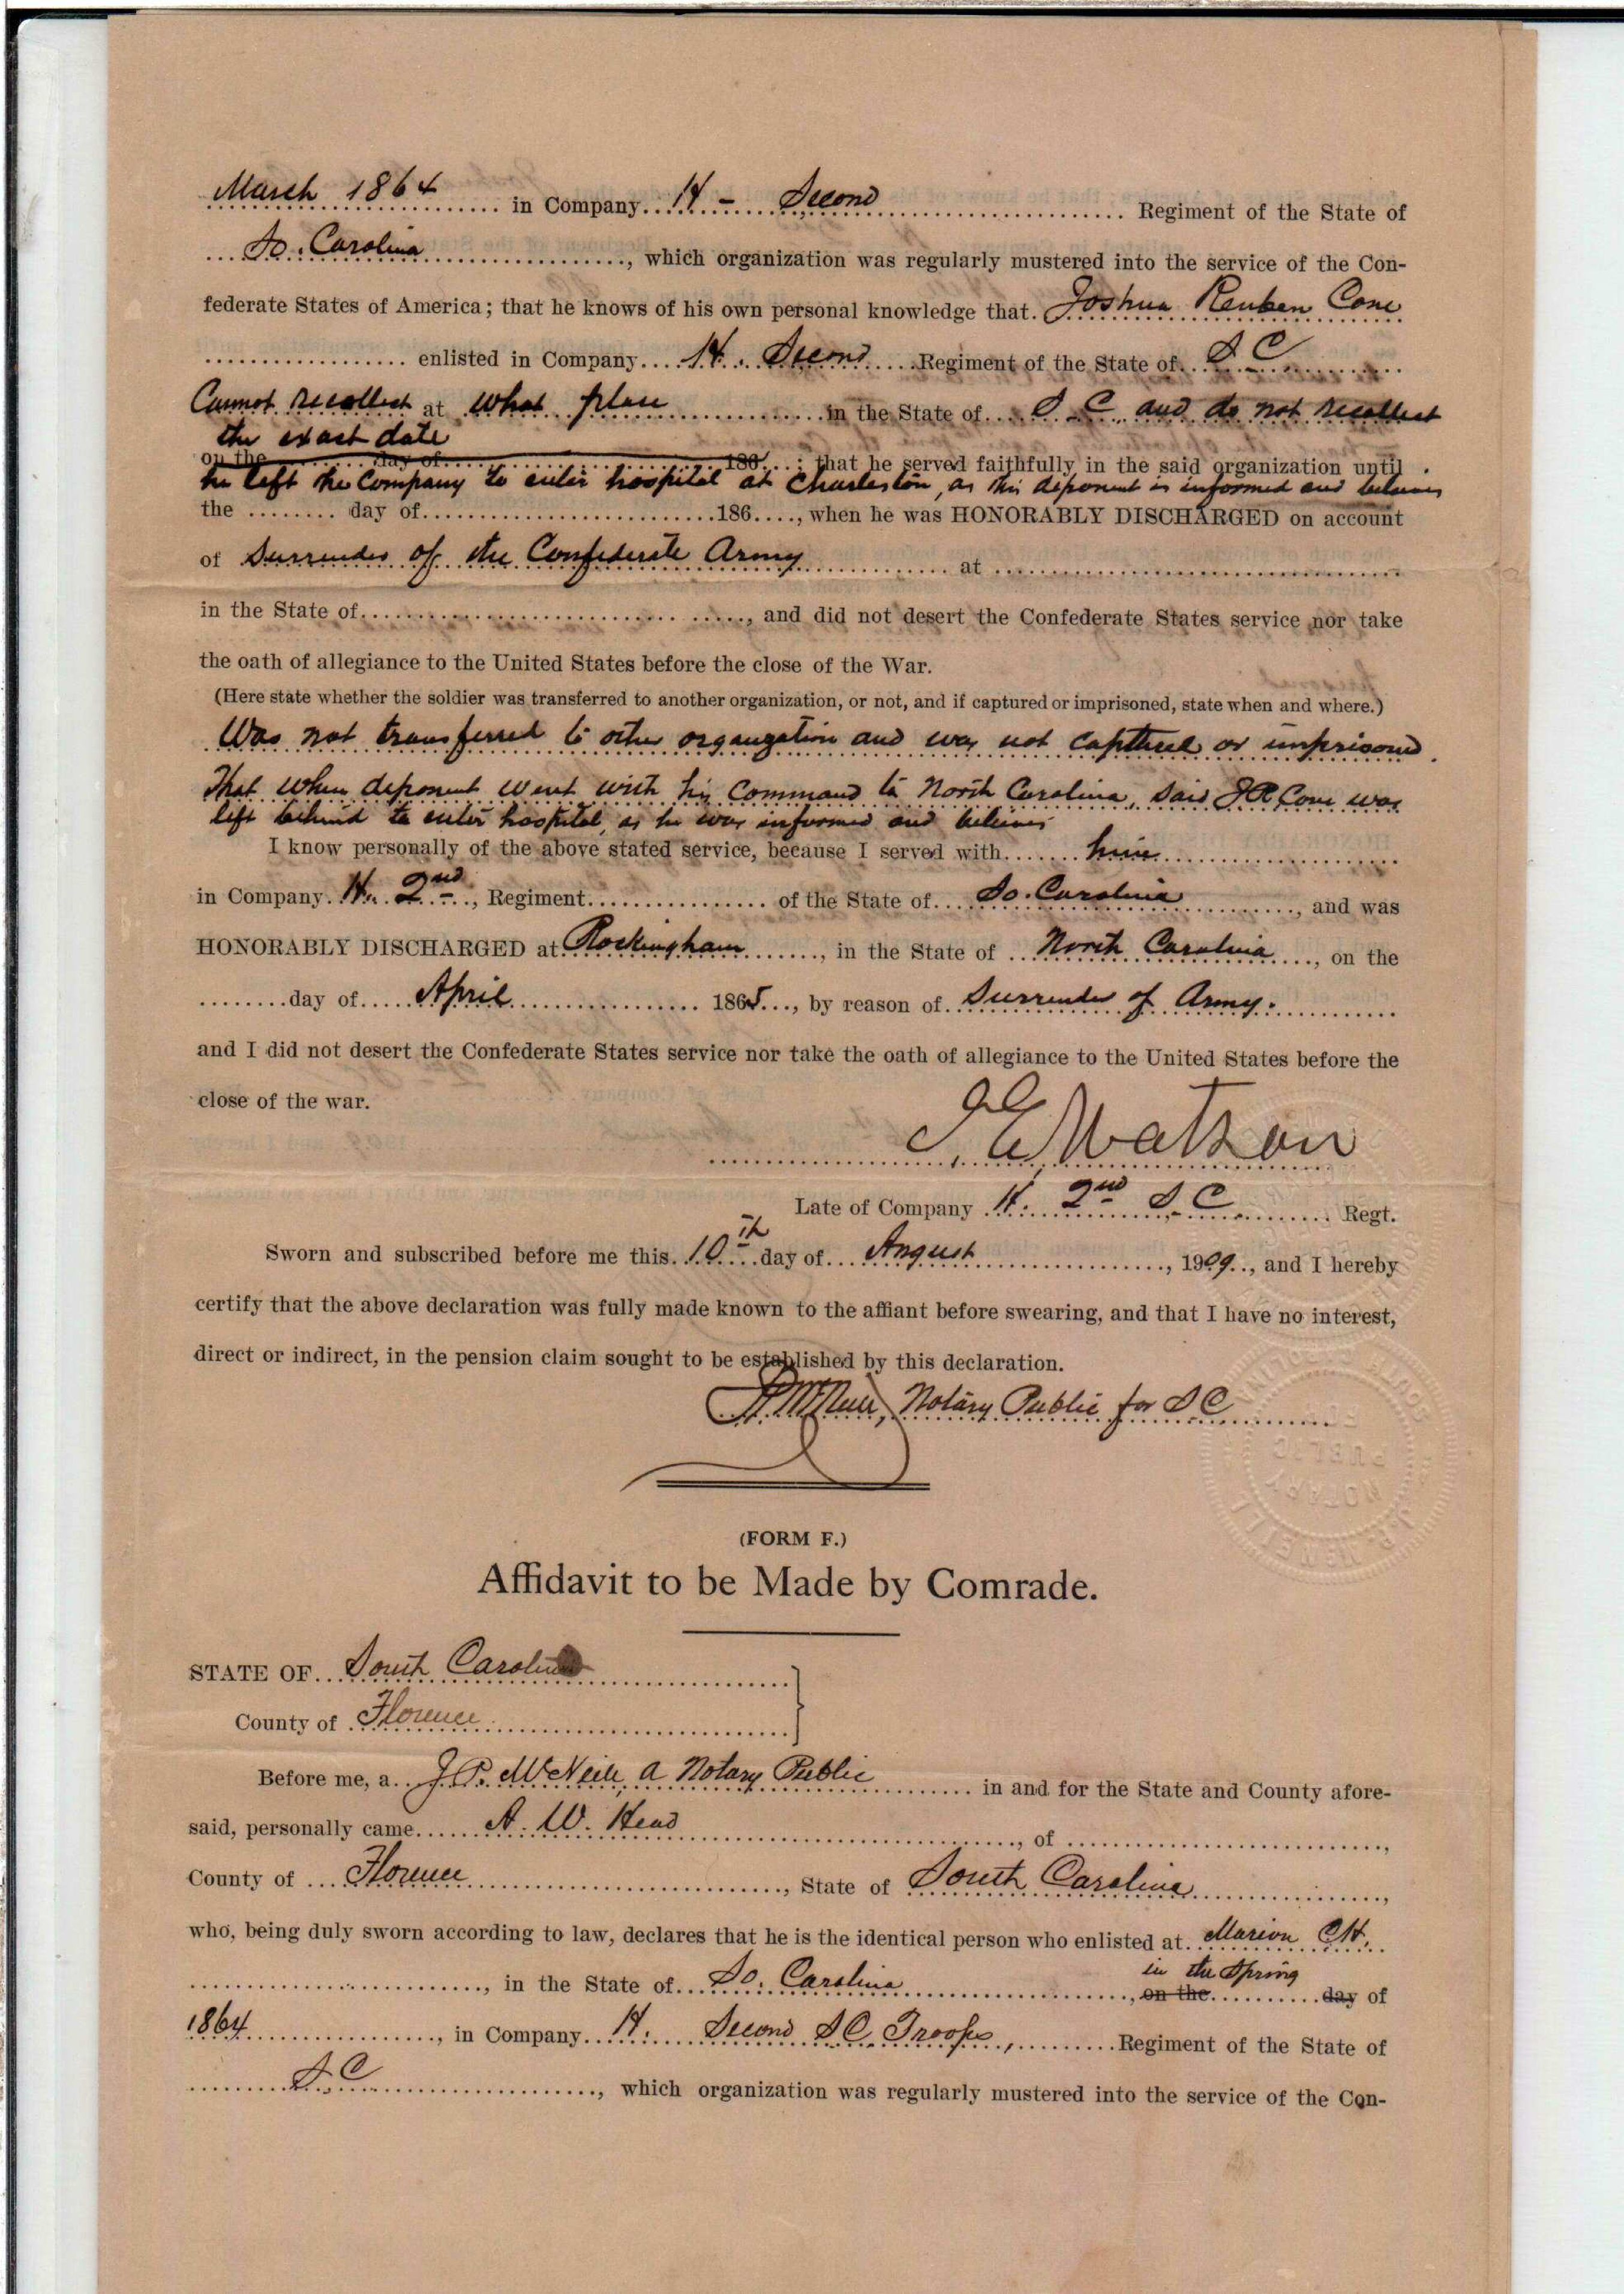 March 1864 in Company H - Second Regiment of the State of
So. Carolina, which organization was regularly mustered into the service of the Con-
federate States of America; that he knows of his own personal knowledge that Joshua Reuben Cone
enlisted in Company H. Second Regiment of the State of S C
Cannot recollect at what place in the State of S C and do not recollect
the exact date
on the day of 186 ; that he served faithfully in the said organization until
he left the Company to enter hospital at Charleston, as this deponent is informed and believes
the day of 186 , when he was HONORABLY DISCHARGED on account
of Surrender of the Confederate Army at
in the State of , and did not desert the Confederate States service nor take
the oath of allegiance to the United States before the close of the War.
(Here state whether the soldier was transferred to another organization, or not, and if captured or imprisoned, state when and where.)
Was not transferred to other organization and was not captured or imprisoned.
That when deponent went with his Command to North Carolina, said J R Cone was
left behind to enter hospital, as he was informed and believes
I know personally of the above stated service, because I served with him
in Company H. 2nd, Regiment of the State of So. Carolina, and was
HONORABLY DISCHARGED at Rockingham, in the State of North Carolina, on the
day of April 1865, by reason of Surrender of Army.
and I did not desert the Confederate States service nor take the oath of allegiance to the United States before the
close of the war.
Watson
Late of Company H. 2nd S. C. Regt.
Sworn and subscribed before me this 10th day of August, 1909, and I hereby
certify that the above declaration was fully made known to the affiant before swearing, and that I have no interest,
direct or indirect, in the pension claim sought to be established by this declaration.
J.P. McNeill, Notary Public for S C
J.P. McNEILL NOTARY PUBLIC SOUTH CAROLINA
(FORM F.)
Affidavit to be Made by Comrade.
STATE OF South Carolina
County of Florence
Before me, a J. P. McNeill, a Notary Public in and for the State and County afore-
said, personally came A. W. Head, of ,
County of Florence, State of South Carolina,
who, being duly sworn according to law, declares that he is the identical person who enlisted at Marion C H.
in the Spring
, in the State of So. Carolina, on the day of
1864, in Company H. Second S C Troops, Regiment of the State of
S. C, which organization was regularly mustered into the service of the Con-